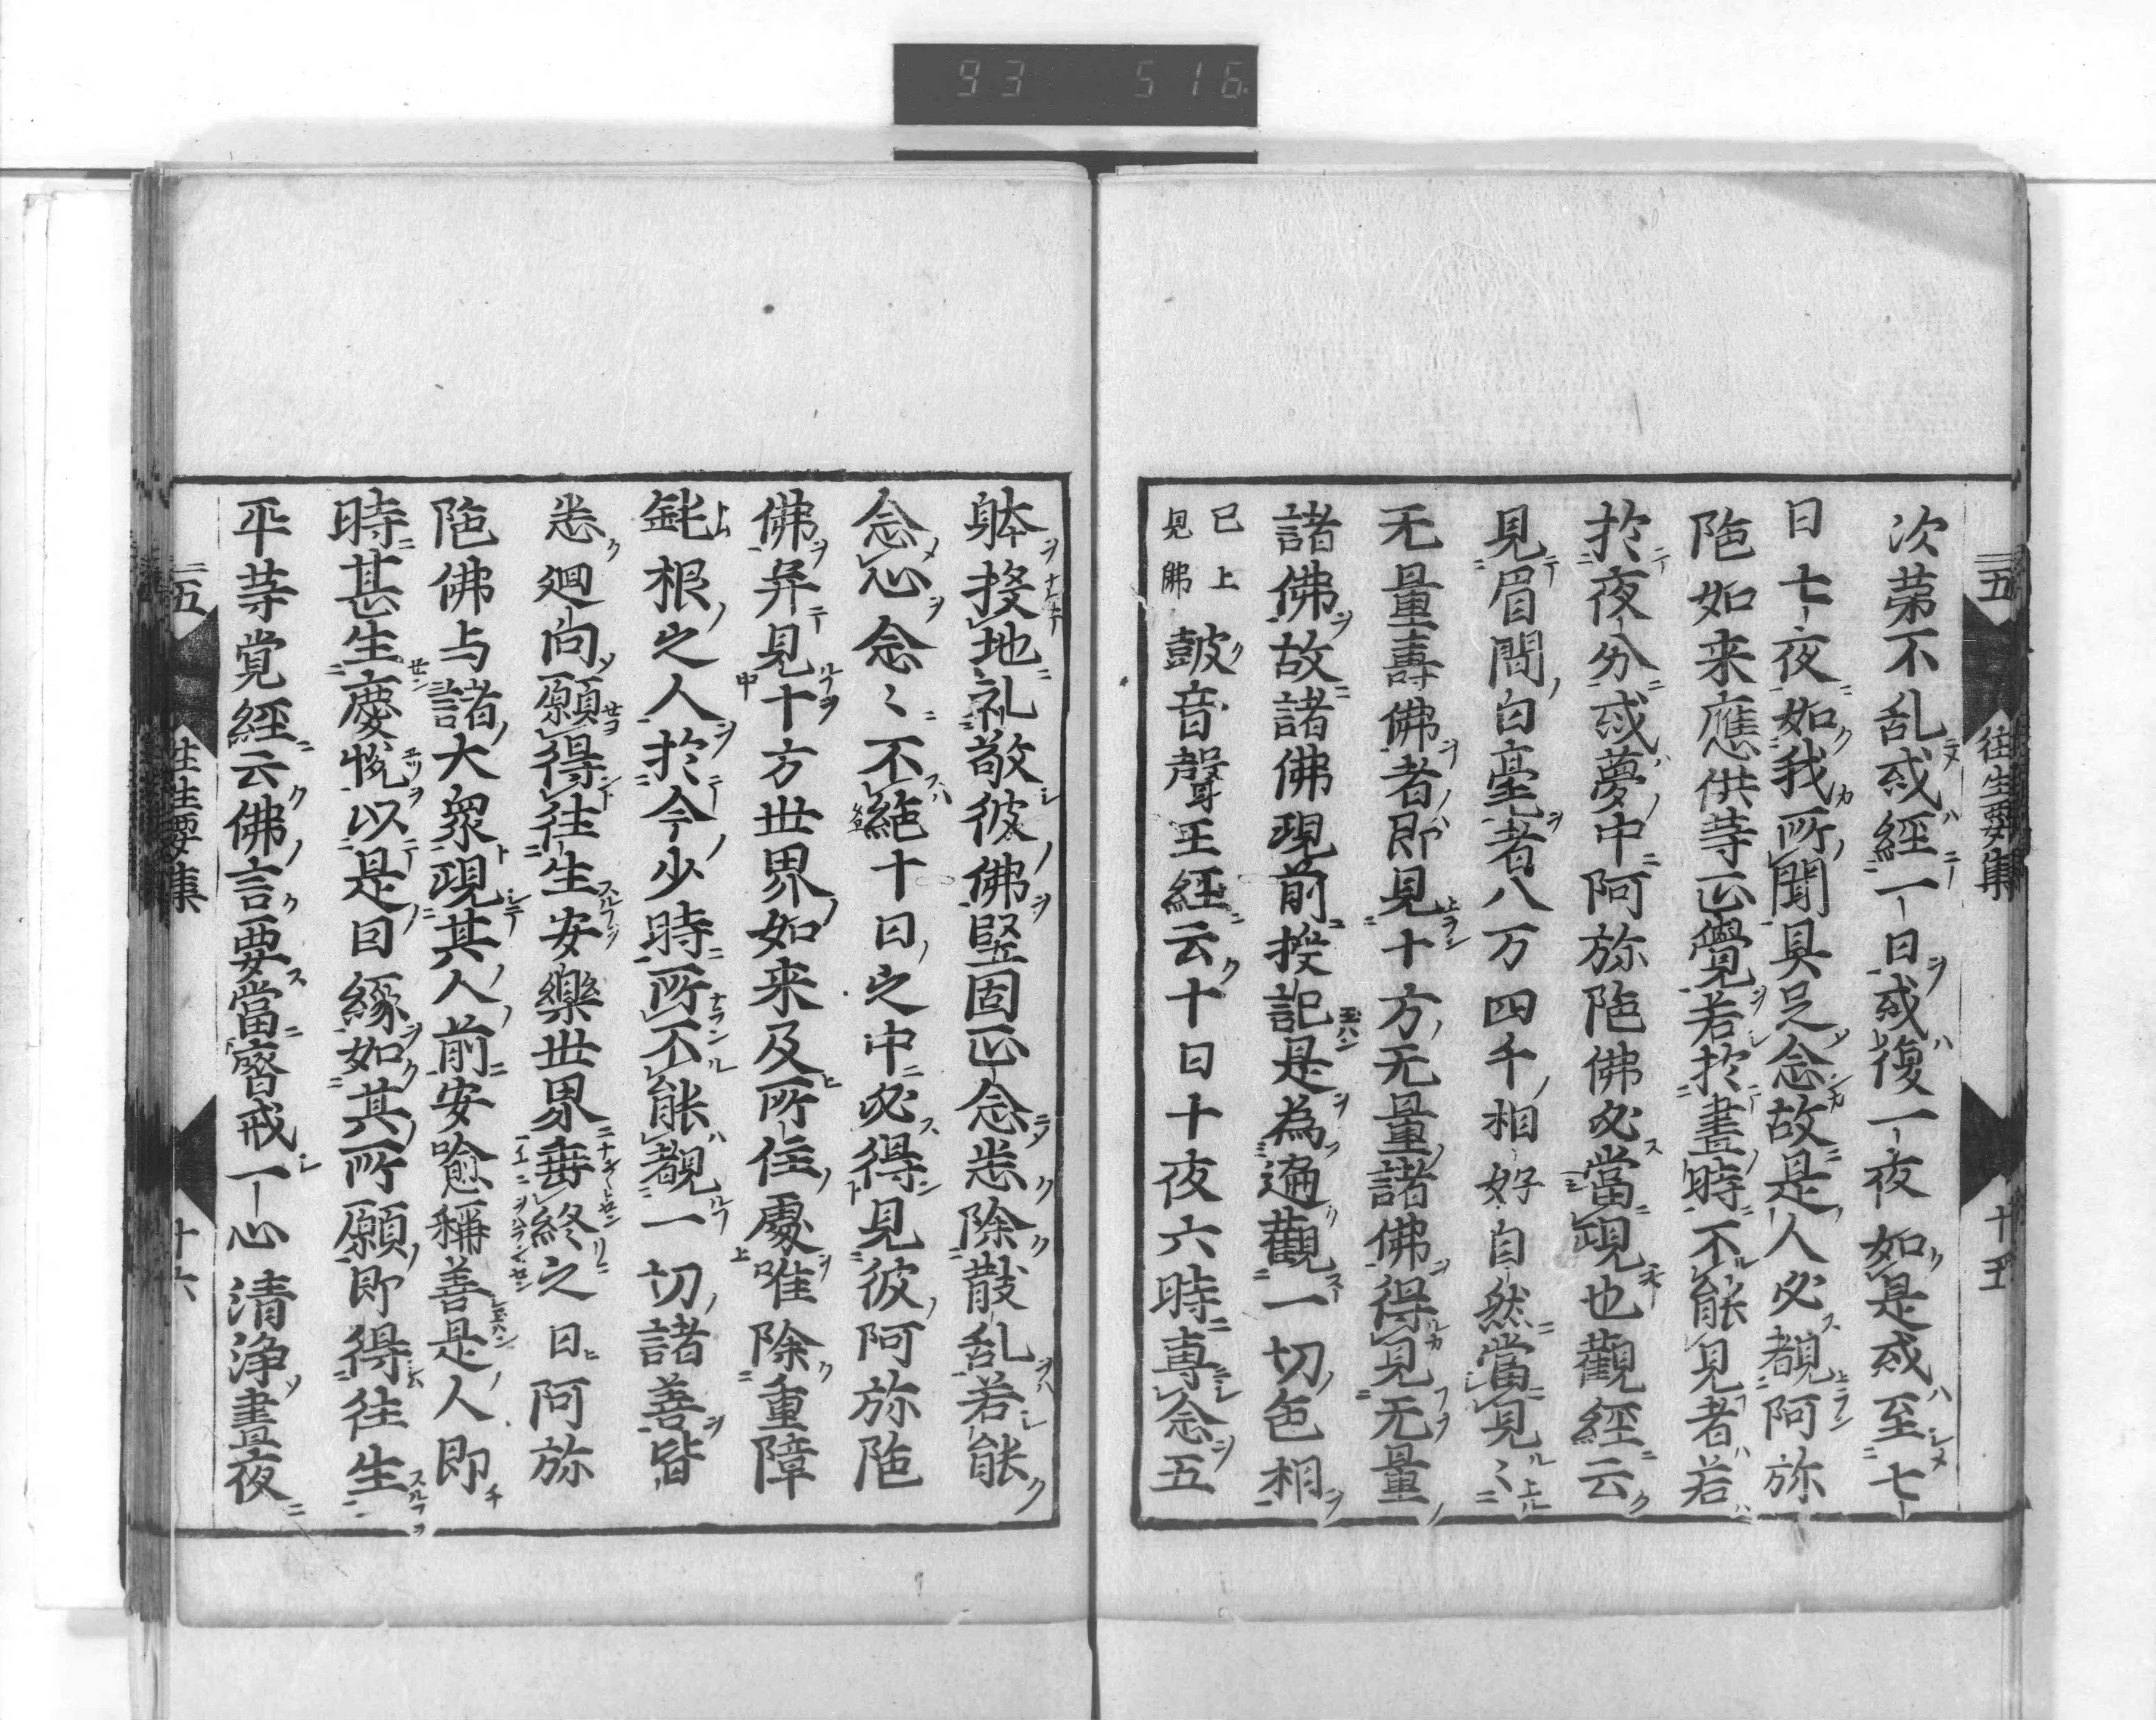 93 516
五 往生要集 十五
次第不乱或経一日或復一夜如是或至七
日七夜如我所聞具足念故是人必覩阿弥
陁如来應供等正覺若於晝時不能見者若
於夜分或夢中阿弥陁佛必當現也觀經云
見眉間白毫者八万四千相好自然當見〻
无量壽佛者即見十方无量諸佛得見无量
諸佛故諸佛現前授記是為遍觀一切色相
已上
見佛
鼓音聲王經云十日十夜六時専念五
躰投地礼敬彼佛堅固正念悉除散乱若能
念心念〻不絶十日之中必得見彼阿弥陁
佛并見十方世界如来及所住處唯除重障
鈍根之人於今少時所不能覩一切諸善皆
悉廻向願得往生安樂世界垂終之日阿弥
陁佛与諸大衆現其人前安喩稱善是人即
時甚生慶悦以是因縁如其所願即得往生
平等覚經云佛言要當齋戒一心清浄晝夜
五 往生要集 十六